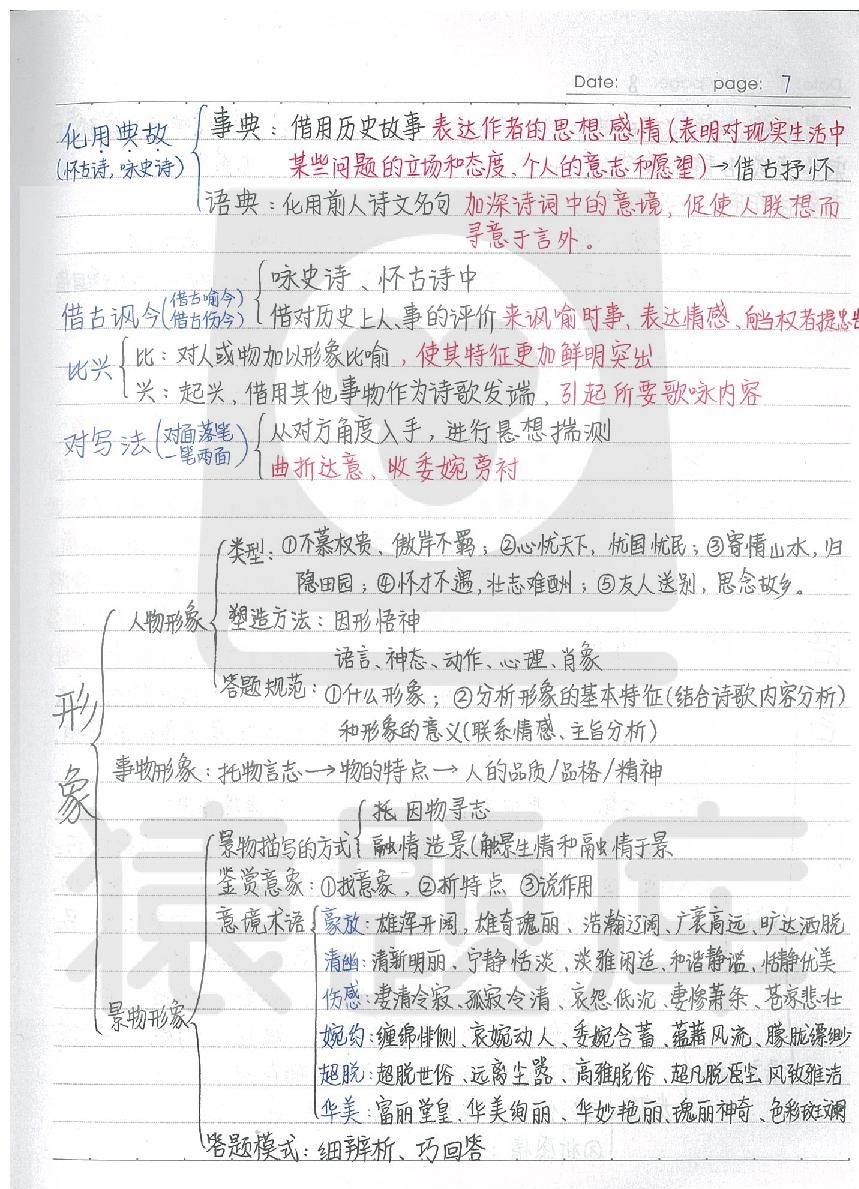 Date: 8 page: 7
化用典故
(怀古诗,咏史诗)
事典：借用历史故事表达作者的思想感情(表明对现实生活中
某些问题的立场和态度、个人的意志和愿望)→借古抒怀
语典：化用前人诗文名句 加深诗词中的意境，促使人联想而
寻意于言外。
借古讽今(借古喻今
借古伤今)
咏史诗、怀古诗中
借对历史上人、事的评价来讽喻时事、表达情感、向当权者提忠告
比兴
比：对人或物加以形象比喻，使其特征更加鲜明突出
兴：起兴，借用其他事物作为诗歌发端，引起所要歌咏内容
对写法(对面落笔
一笔两面)
从对方角度入手，进行悬想揣测
曲折达意、收委婉旁衬
形象
人物形象
类型：①不慕权贵、傲岸不羁；②心忧天下，忧国忧民；③寄情山水，归
隐田园；④怀才不遇,壮志难酬；⑤友人送别，思念故乡。
塑造方法：因形悟神
语言、神态、动作、心理、肖象
答题规范：①什么形象；②分析形象的基本特征(结合诗歌内容分析)
和形象的意义(联系情感、主旨分析)
事物形象：托物言志→物的特点→人的品质/品格/精神
景物形象
景物描写的方式
托 因物寻志
融情造景(触景生情和融情于景
鉴赏意象：①找意象，②析特点 ③说作用
意境术语
豪放：雄浑开阔，雄奇瑰丽、浩瀚辽阔、广袤高远、旷达洒脱
清幽：清新明丽、宁静恬淡、淡雅闲适、和谐静谧、恬静优美
伤感：凄清冷寂、孤寂冷清、哀怨低沉、凄惨萧条、苍凉悲壮
婉约：缠绵悱恻、哀婉动人、委婉含蓄、蕴藉风流、朦胧缥缈
超脱：超脱世俗、远离尘嚣、高雅脱俗、超凡脱尘、风致雅洁
华美：富丽堂皇、华美绚丽、华妙艳丽、瑰丽神奇、色彩斑斓
答题模式：细辨析、巧回答
猿题库